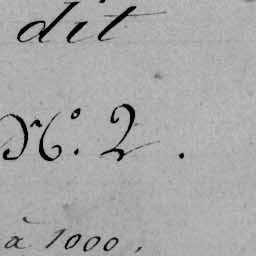 dit
N.º 2.
à 1000.